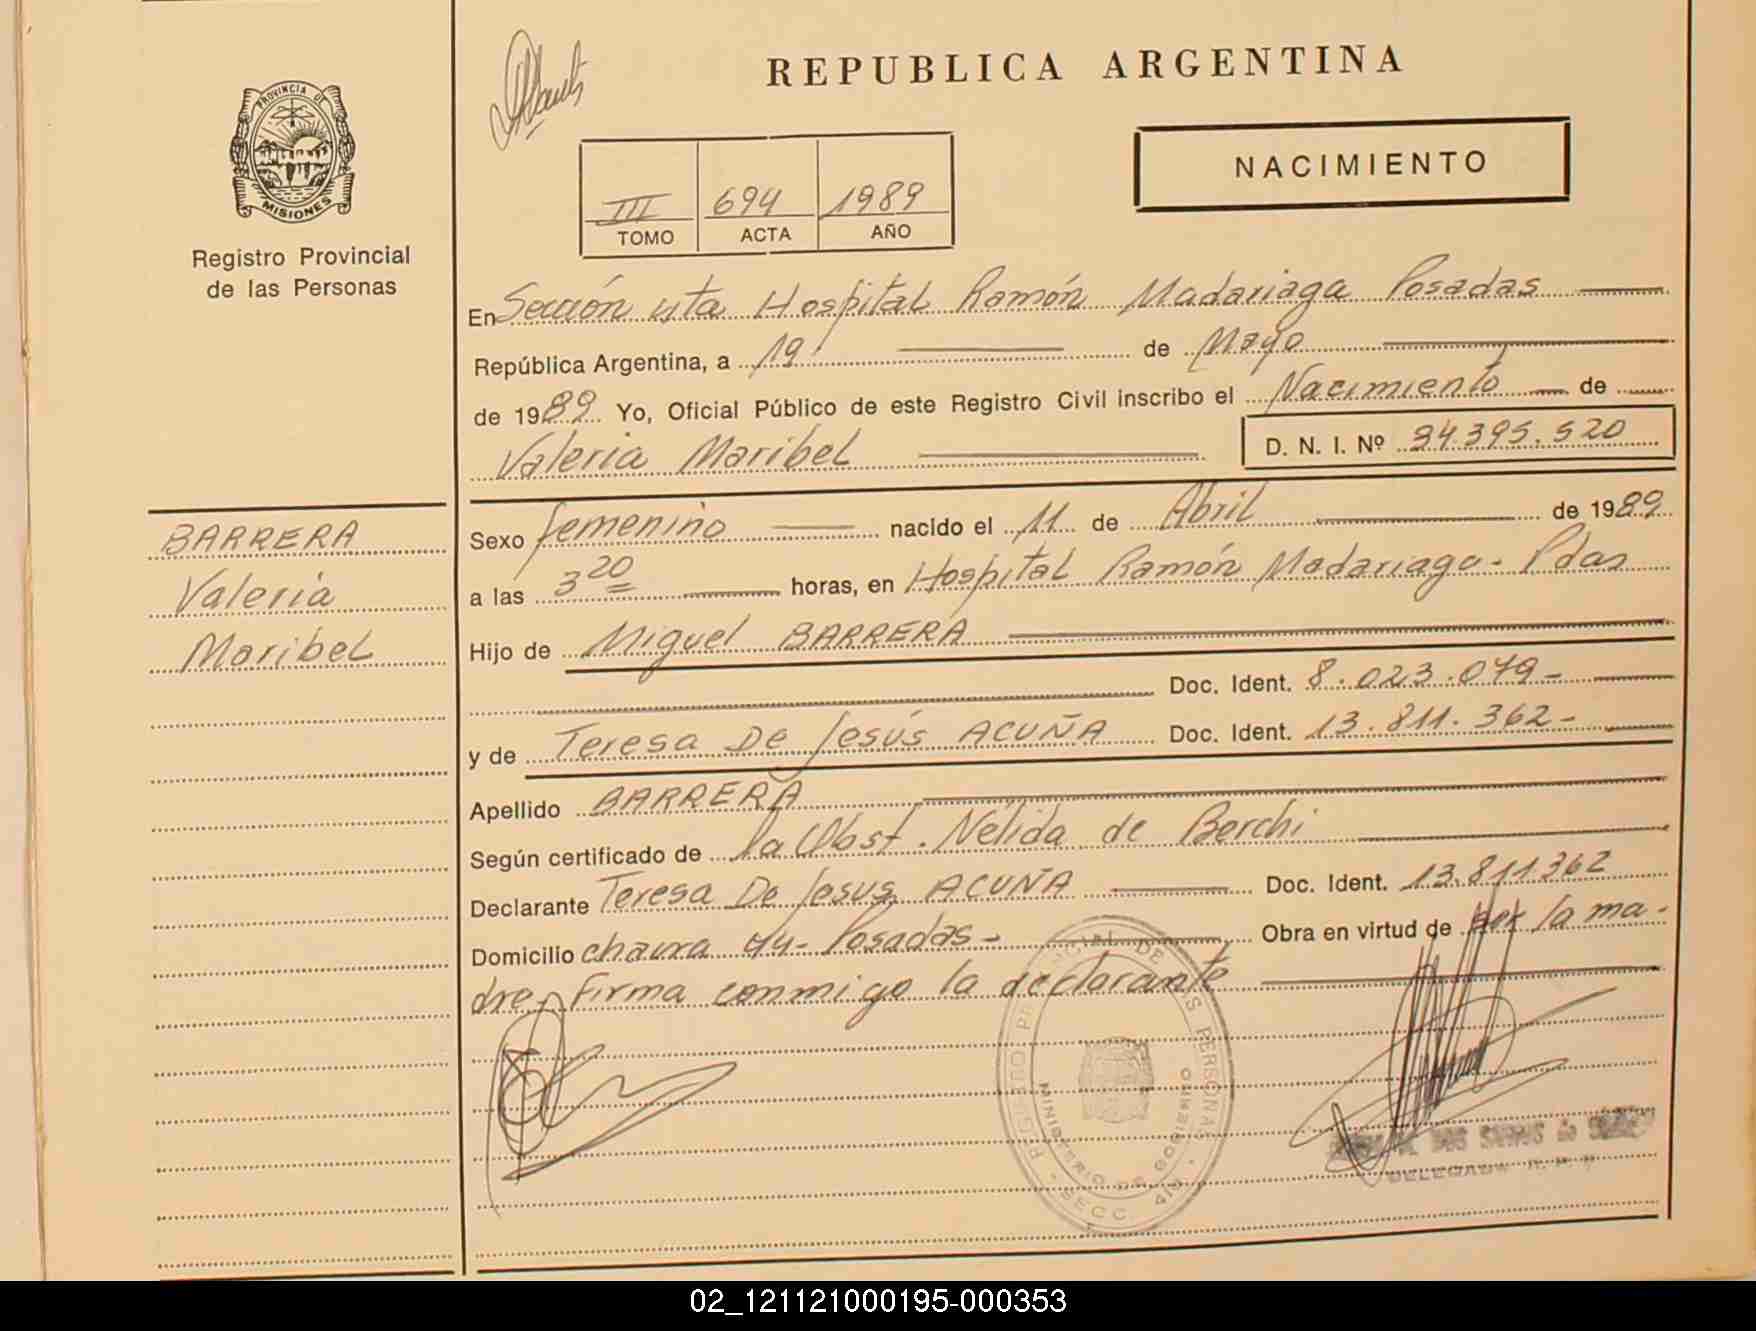 REPUBLICA ARGENTINA
PROVINCIA DE
MISIONES
Registro Provincial
de las Personas
III 694 1989
TOMO ACTA AÑO
NACIMIENTO
En Sección 4ta Hospital Ramón Madariaga Posadas
República Argentina, a 19 de Mayo
de 1989 Yo, Oficial Público de este Registro Civil inscribo el Nacimiento de
Valeria Maribel D. N. I. Nº 34.395.520
BARRERA
Valeria
Maribel
Sexo femenino nacido el 11 de Abril de 1989
a las 3 20 horas, en Hospital Ramón Madariaga - Pdas
Hijo de Miguel BARRERA
Doc. Ident. 8.023.079-
y de Teresa De Jesús ACUÑA Doc. Ident. 13.811.362-
Apellido BARRERA
Según certificado de la Obst. Nélida de Berchi
Declarante Teresa De Jesus ACUÑA Doc. Ident. 13.811362
Domicilio 44- Posadas- Obra en virtud de ser la ma-
dre, firma conmigo la declarante
REGISTRO PROVINCIAL DE LAS PERSONAS
MINISTERIO DE GOBIERNO
SECC. 4ta
DOS SANTOS de
DELEGADA R. P. P.
02_121121000195-000353